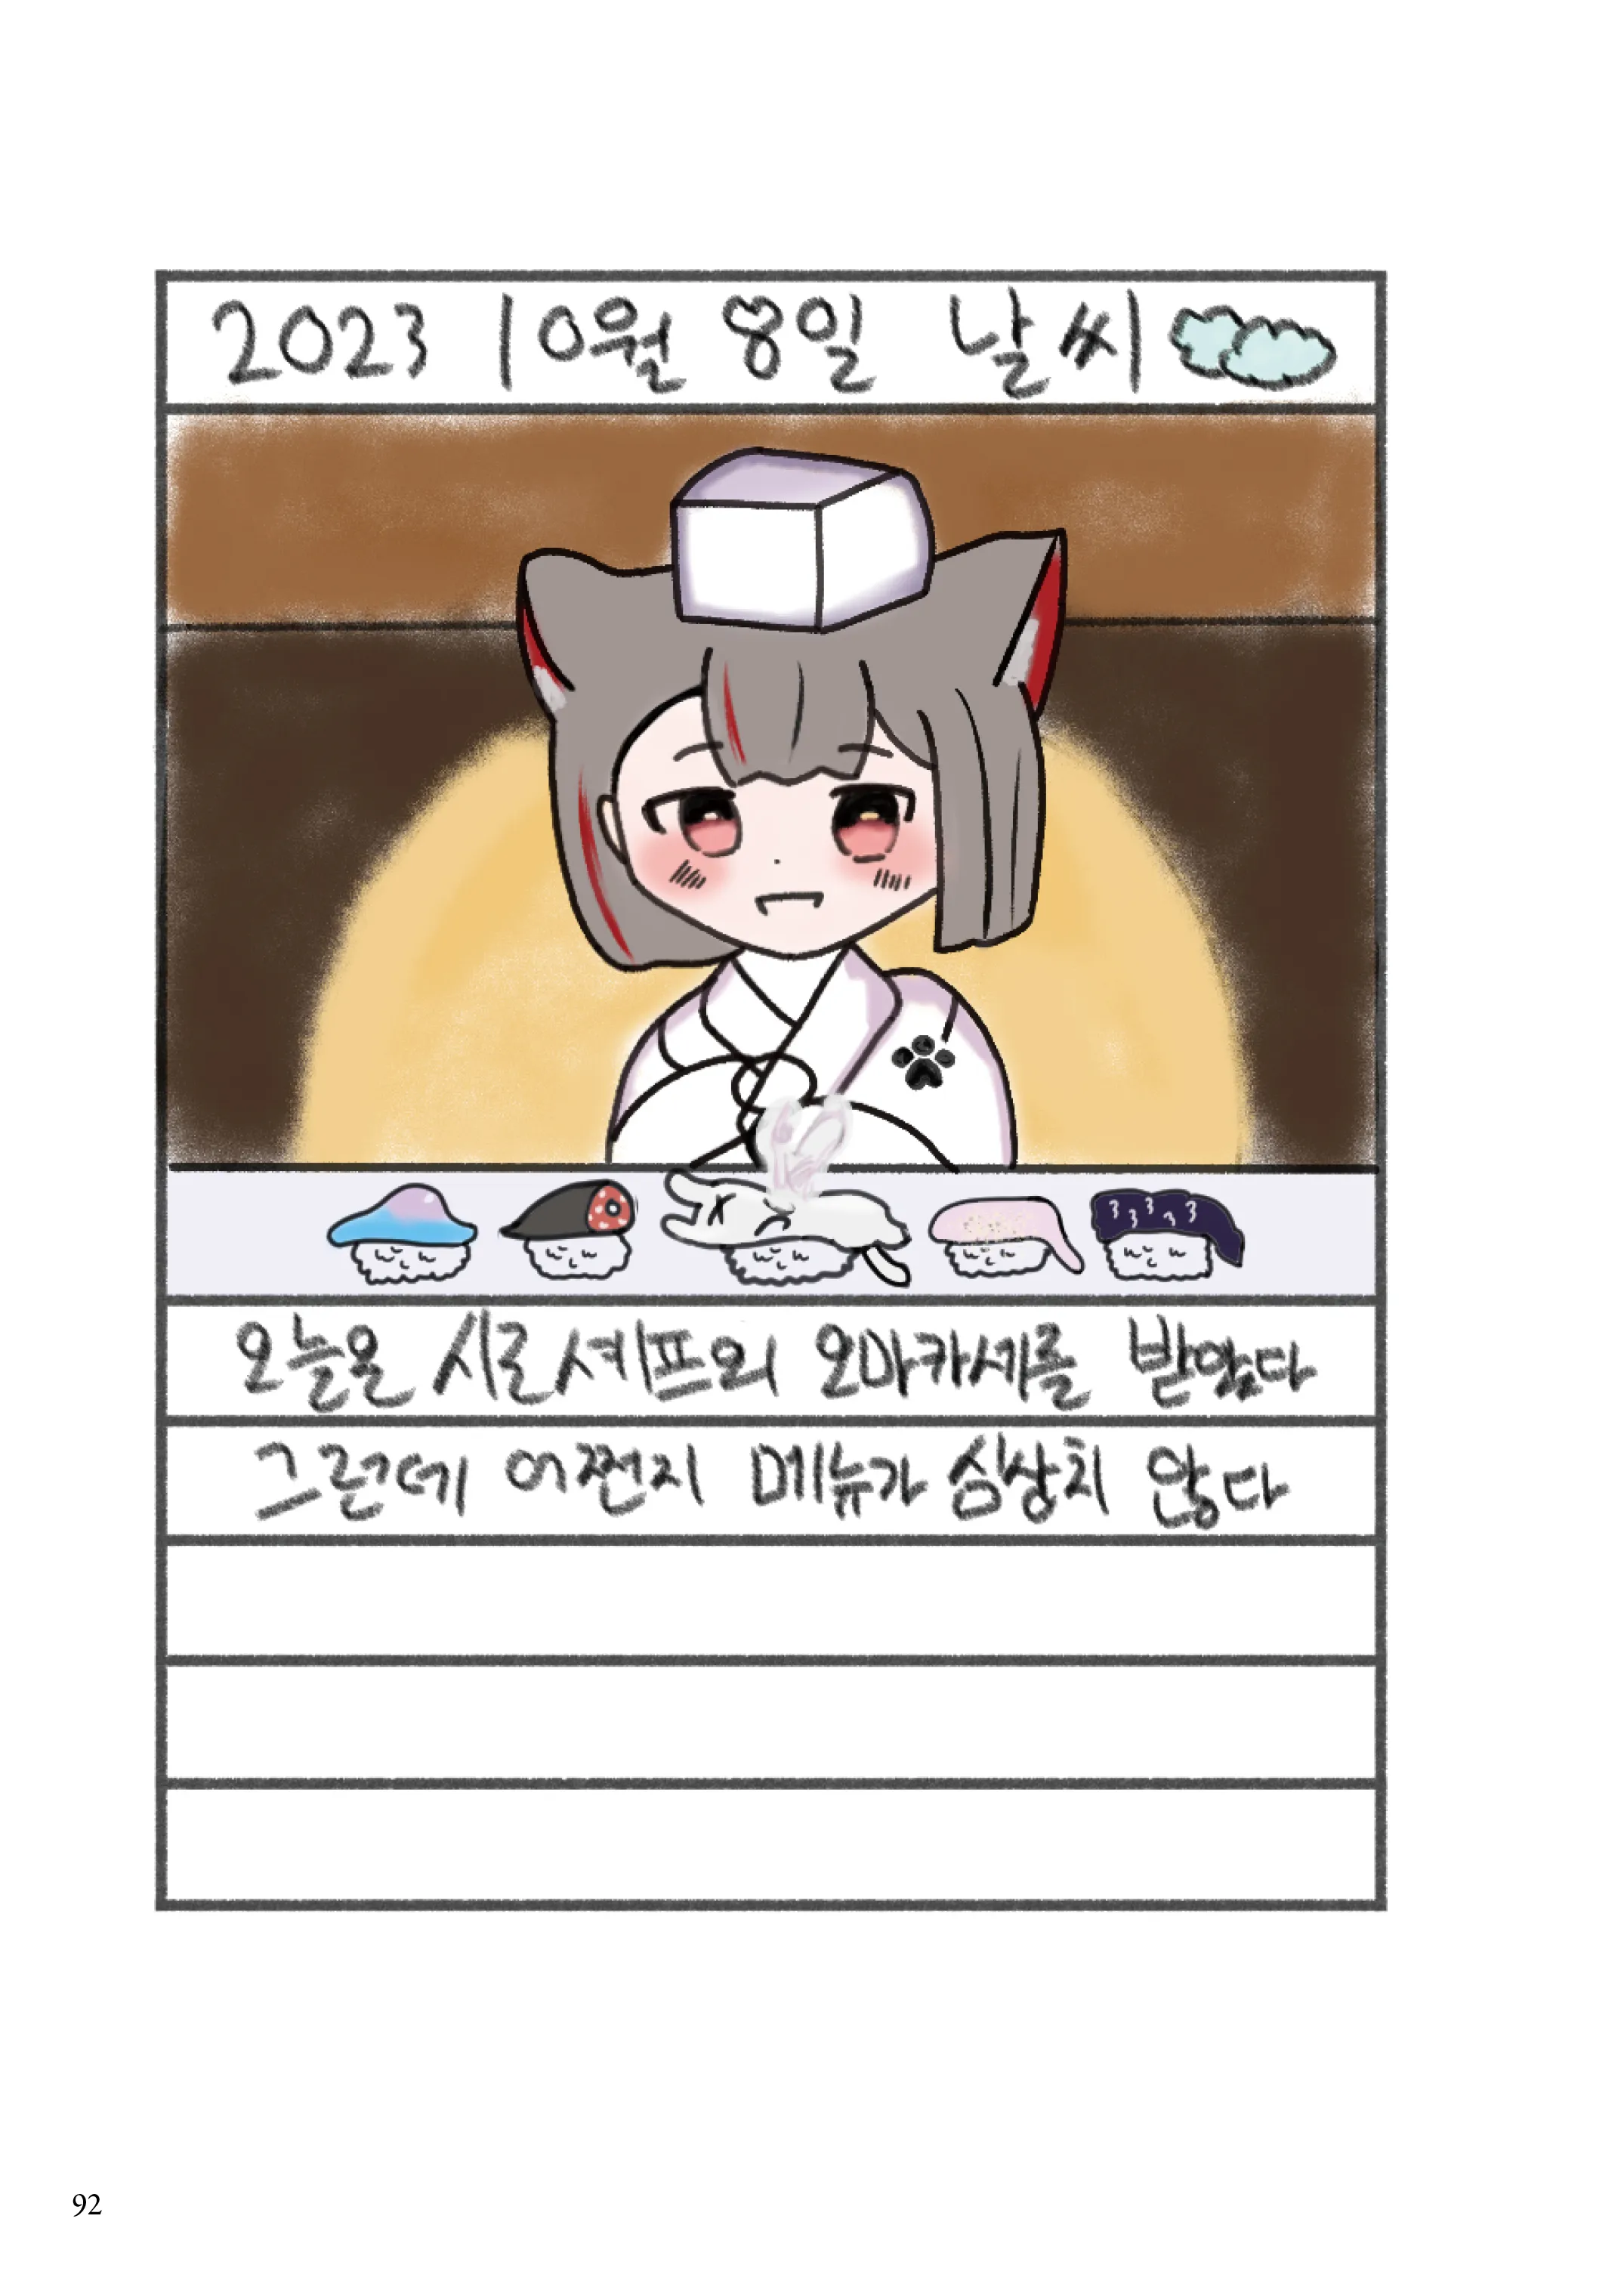 2023 10월 8일 날씨
오늘은 시로셰프의 오마카세를 받았다
그런데 어쩐지 메뉴가 심상치 않다
92